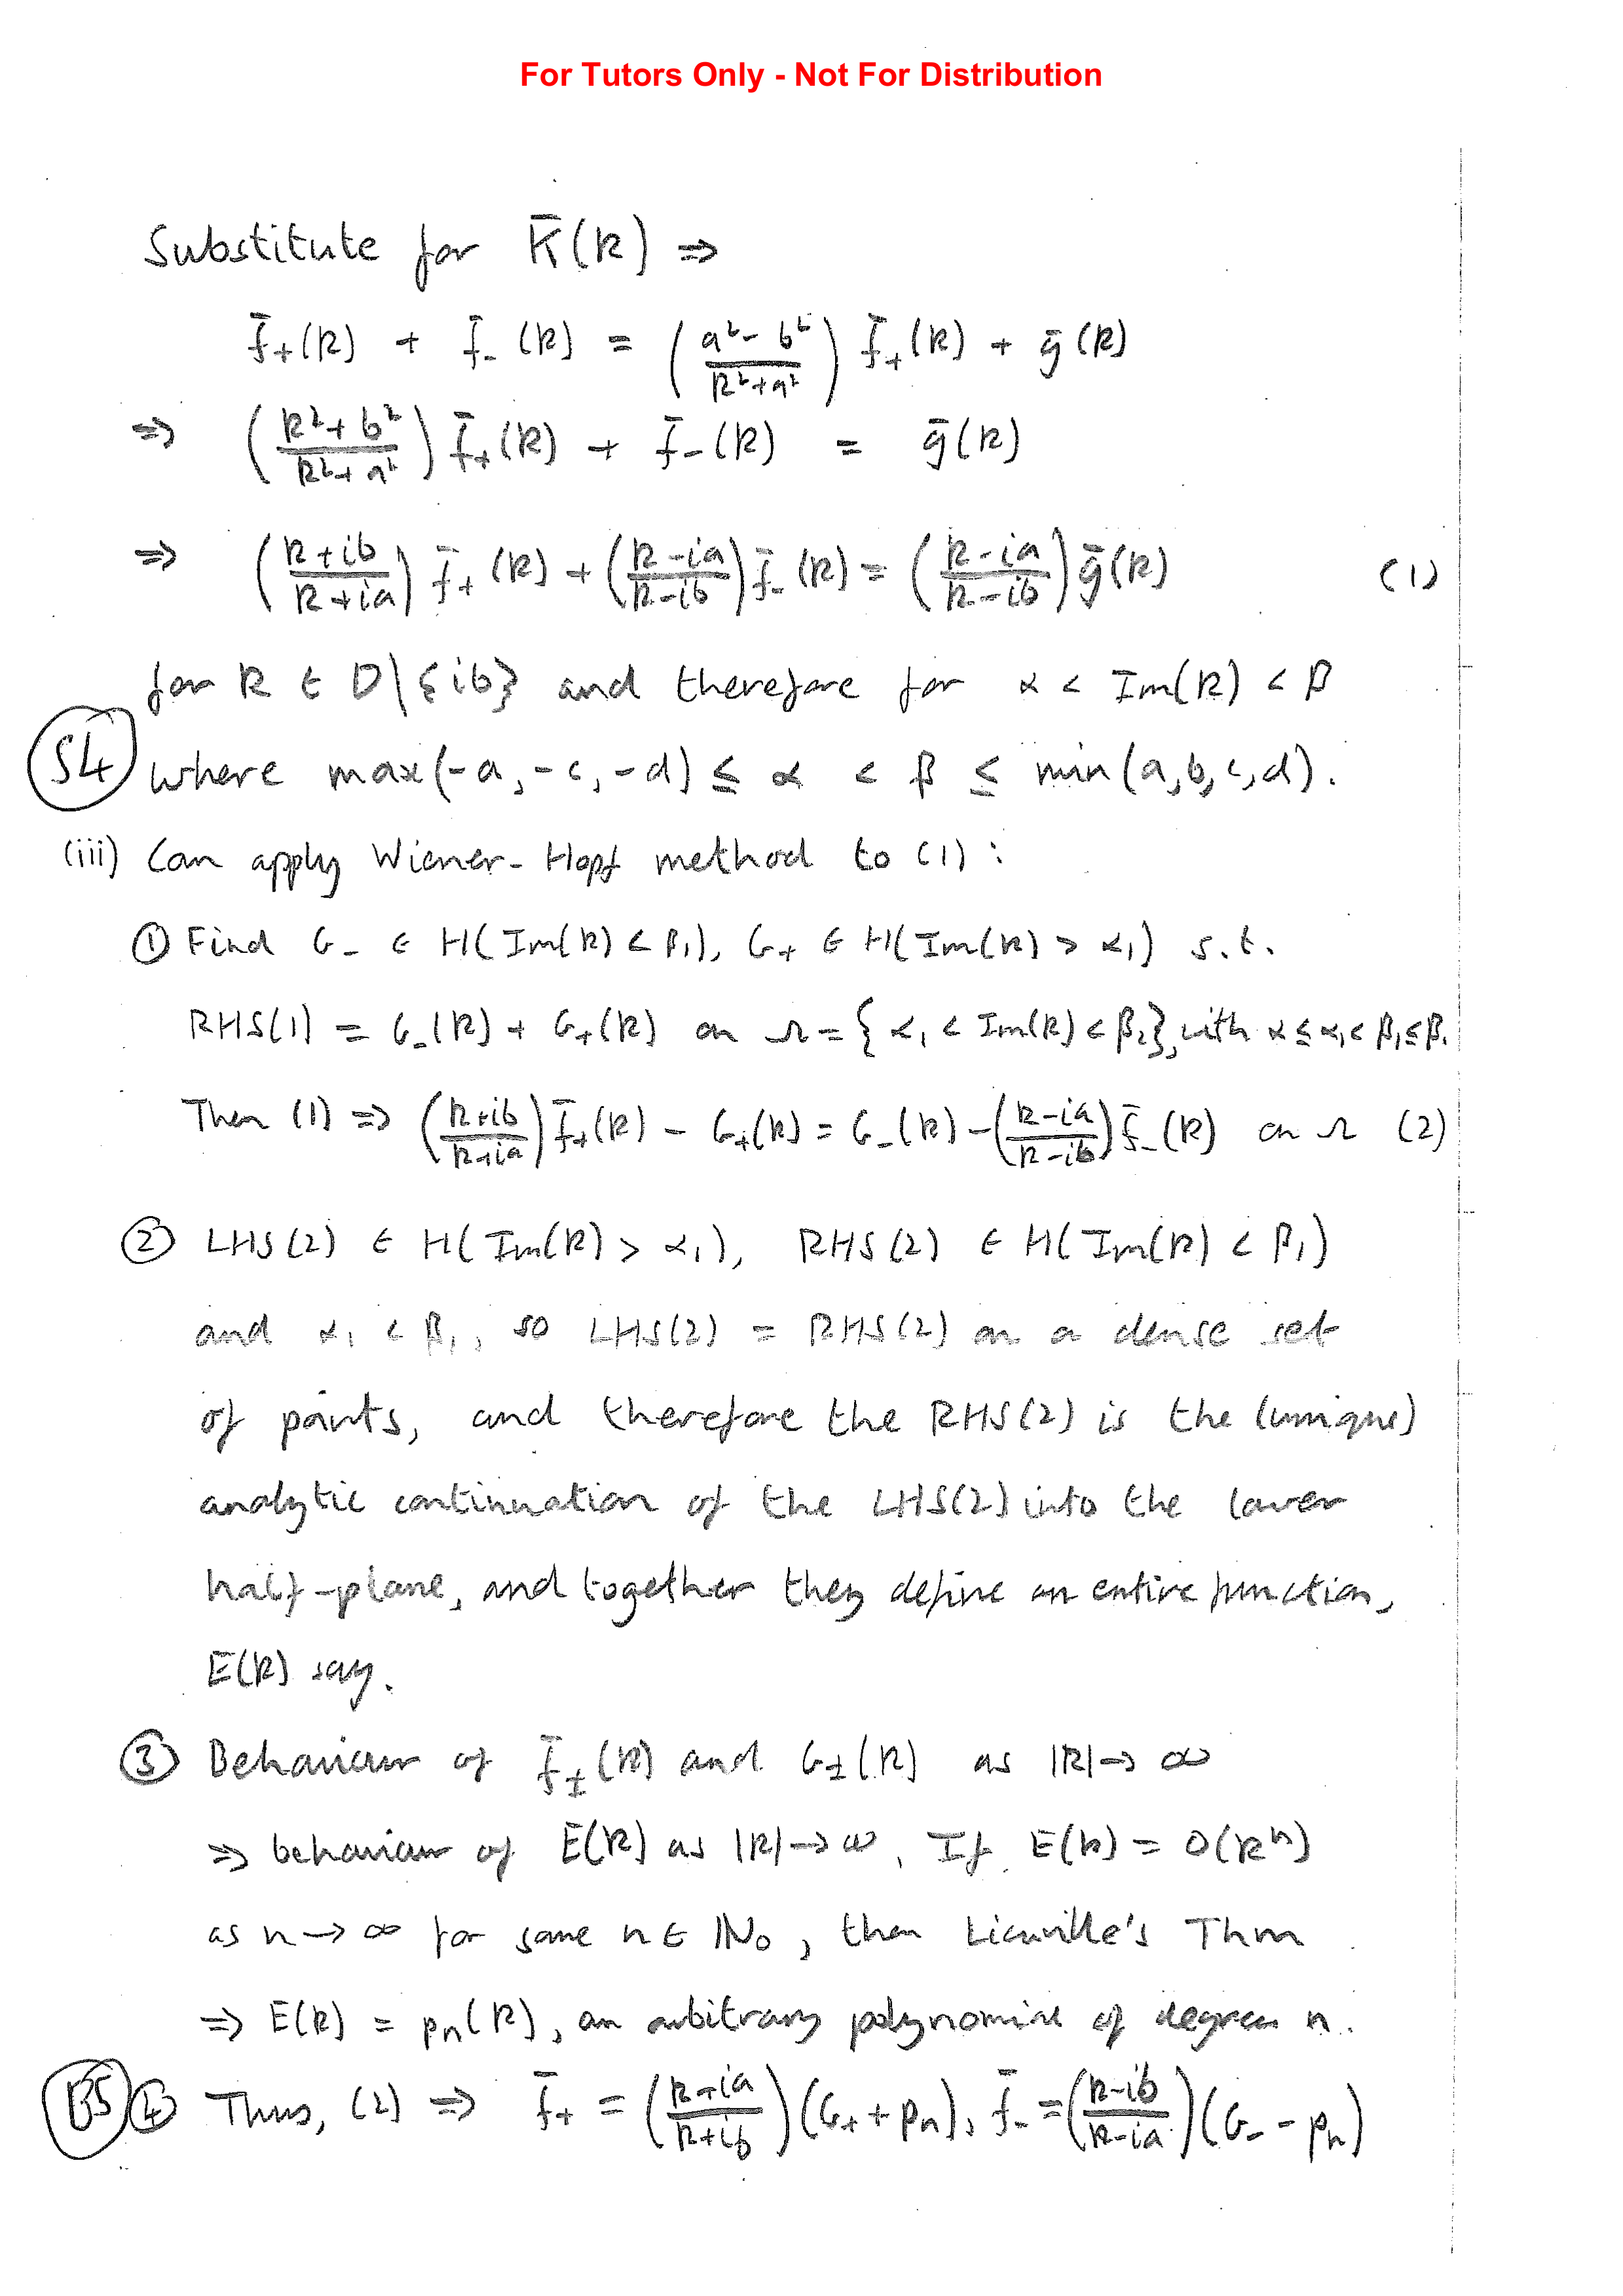 For Tutors Only - Not For Distribution
Substitute for K̄(k) ⇒
f̄₊(k) + f̄₋(k) = ((a² - b²)/(k² + a²)) f̄₊(k) + ḡ(k)
⇒ ((k² + b²)/(k² + a²)) f̄₊(k) + f̄₋(k) = ḡ(k)
⇒ ((k + ib)/(k + ia)) f̄₊(k) + ((k - ia)/(k - ib)) f̄₋(k) = ((k - ia)/(k - ib)) ḡ(k) (1)
for k ∈ D\{ib} and therefore for α < Im(k) < β
S4 where max(-a, -c, -d) ≤ α < β ≤ min(a, b, c, d).
(iii) Can apply Wiener-Hopf method to (1):
① Find G₋ ∈ H(Im(k) < β₁), G₊ ∈ H(Im(k) > α₁) s.t.
RHS(1) = G₋(k) + G₊(k) on Ω = { α₁ < Im(k) < β₁}, with α ≤ α₁ < β₁ ≤ β.
Then (1) ⇒ ((k + ib)/(k + ia)) f̄₊(k) - G₊(k) = G₋(k) - ((k - ia)/(k - ib)) f̄₋(k) on Ω (2)
② LHS(2) ∈ H(Im(k) > α₁), RHS(2) ∈ H(Im(k) < β₁)
and α₁ < β₁, so LHS(2) = RHS(2) on a dense set
of points, and therefore the RHS(2) is the (unique)
analytic continuation of the LHS(2) into the lower
half-plane, and together they define an entire function,
E(k) say.
③ Behaviour of f̄±(k) and G±(k) as |k| → ∞
⇒ behaviour of E(k) as |k| → ∞. If E(k) = O(kⁿ)
as n → ∞ for some n ∈ ℕ₀, then Liouville's Thm
⇒ E(k) = pₙ(k), an arbitrary polynomial of degree n.
B5 ④ Thus, (2) ⇒ f̄₊ = ((k + ia)/(k + ib))(G₊ + pₙ), f̄₋ = ((k - ib)/(k - ia))(G₋ - pₙ)